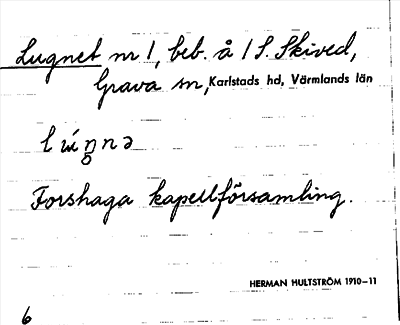 Lugnet nr 1, beb. å 1 S. Skived,
Grava sn, Karlstads hd, Värmlands län
Forshaga kapellförsamling.
HERMAN HULTSTRÖM 1910–11
6